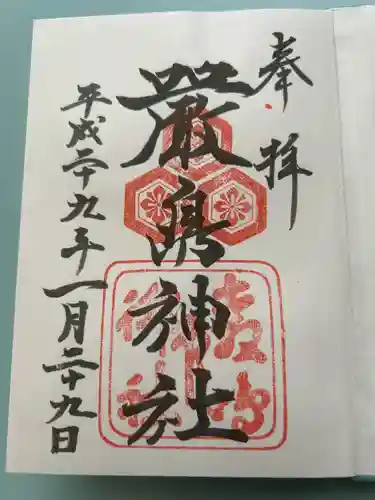 奉拝
嚴島神社
平成二十九年一月二十九日